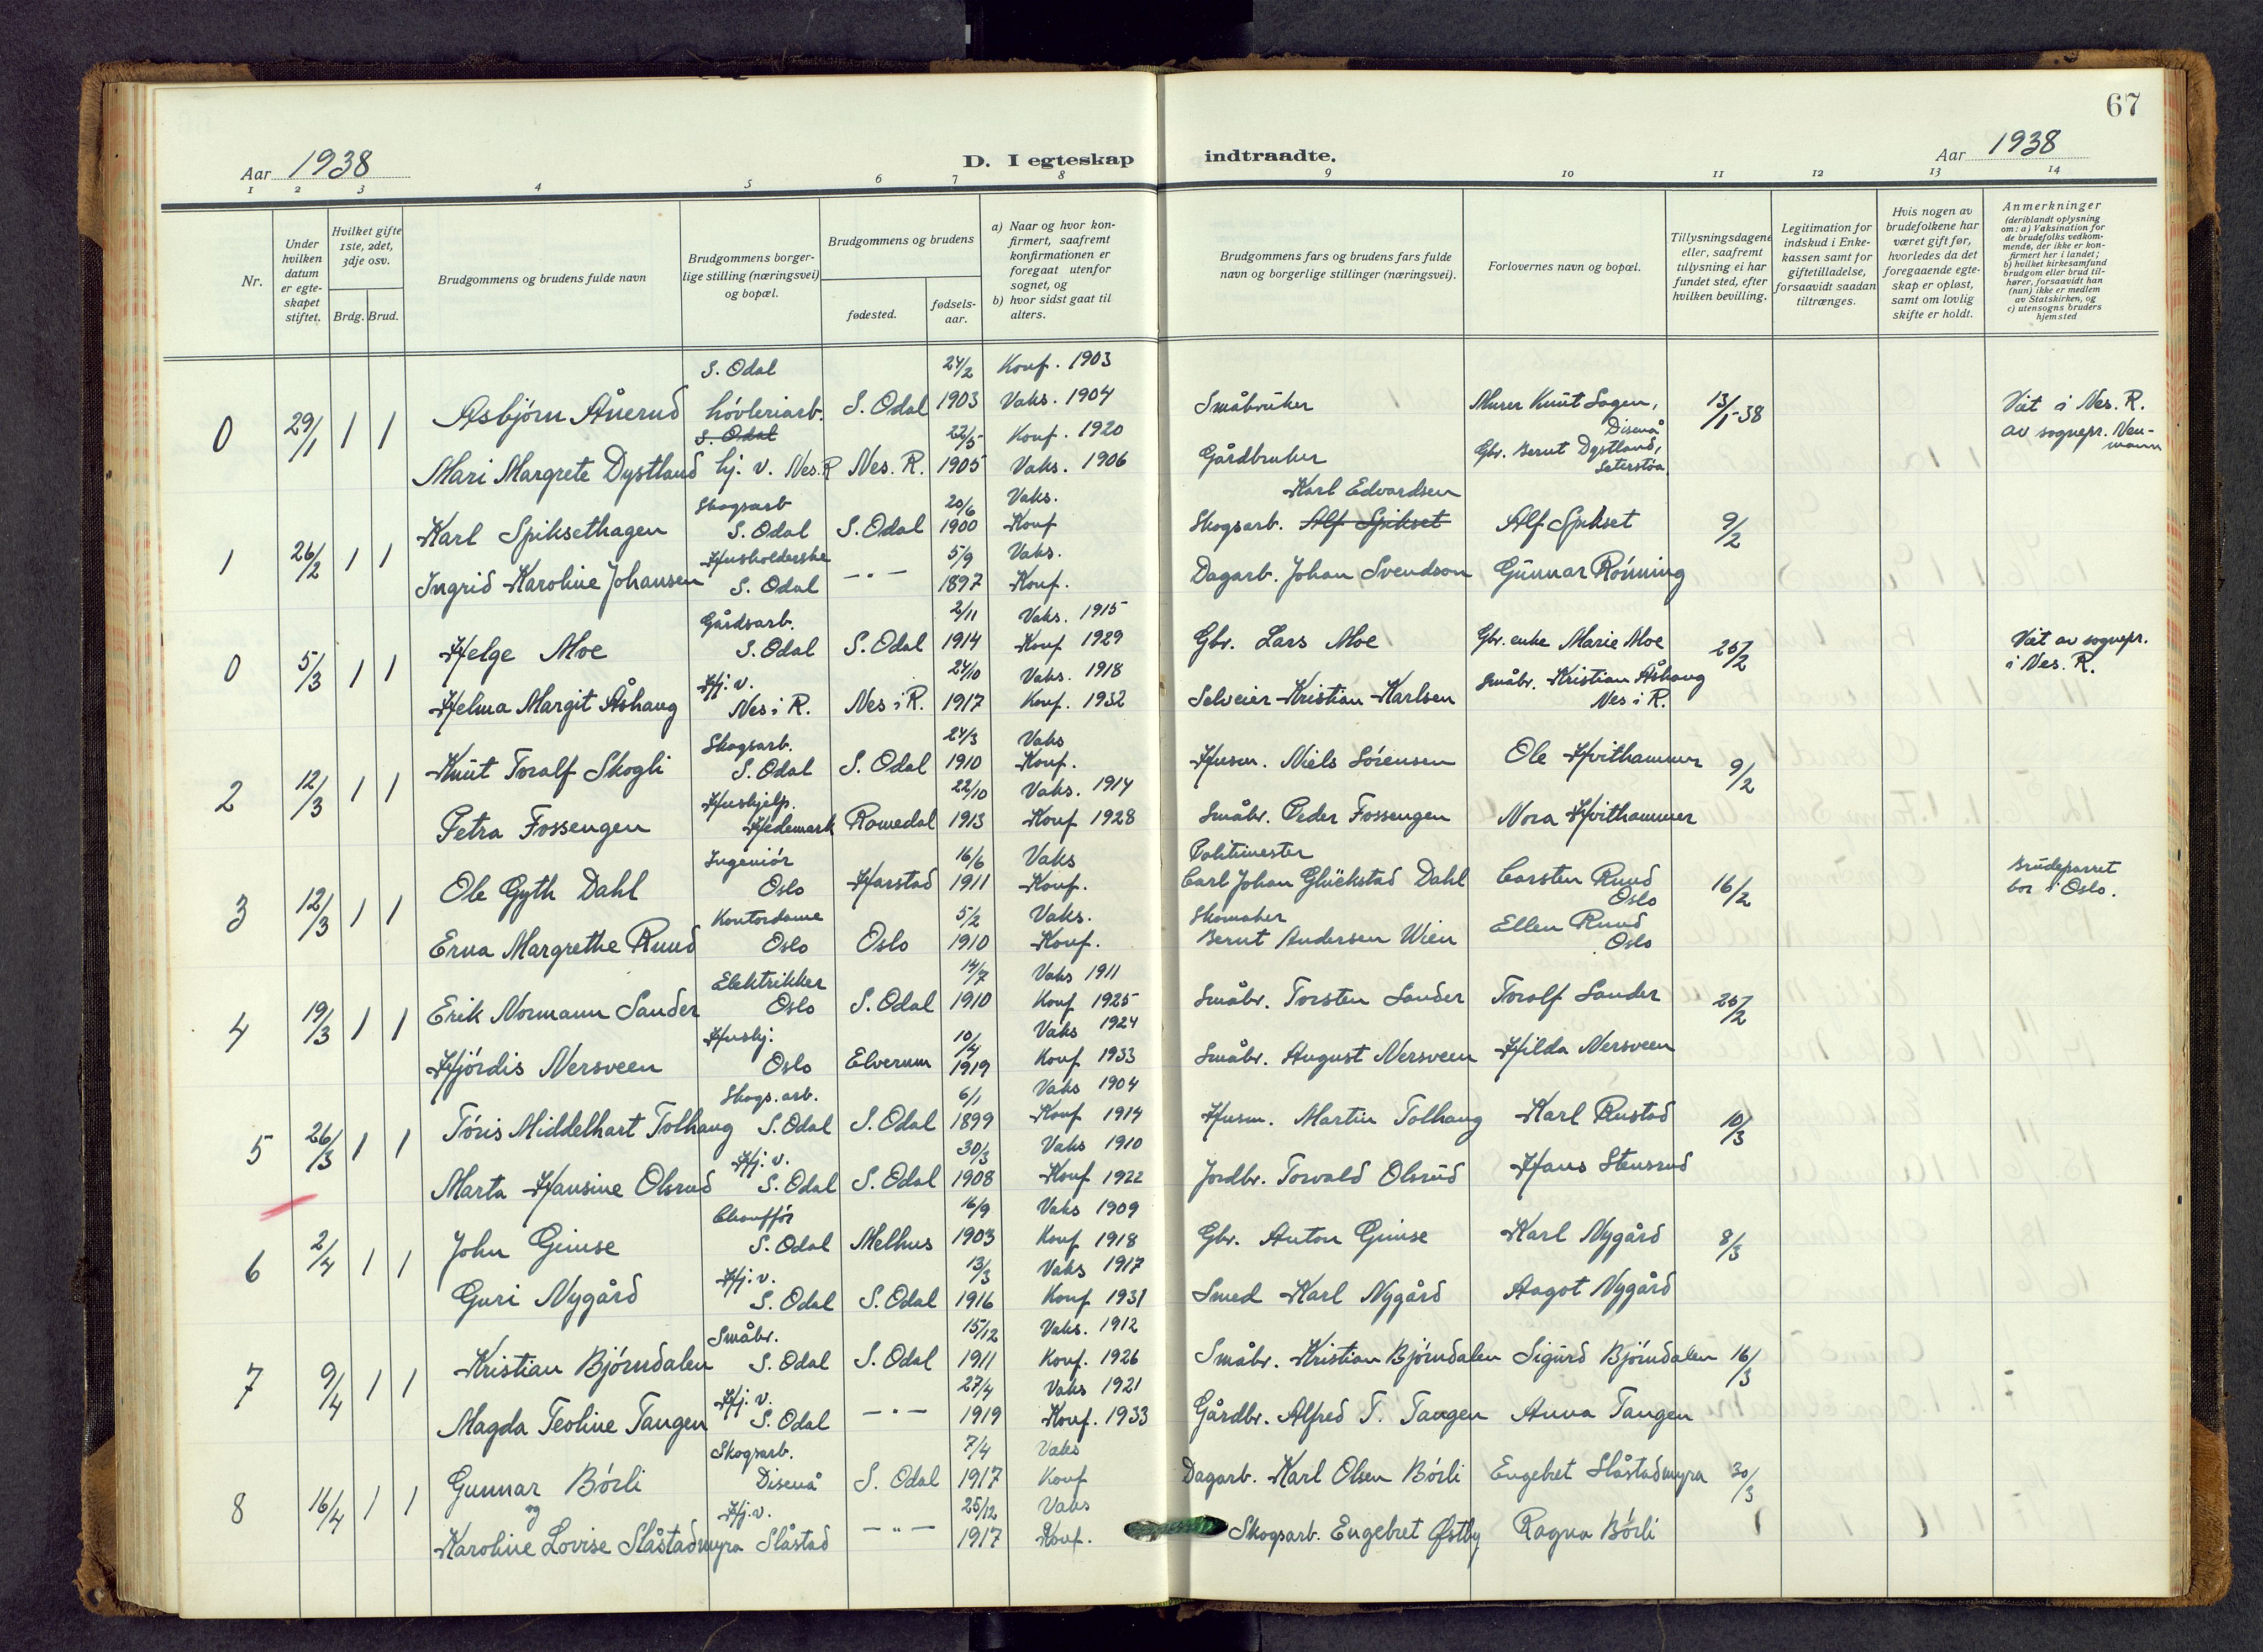 67
Aar 1938
D. I egteskap indtraadte.
Aar 1938
1 2 3 4 5 6 7 8 9 10 11 12 13 14
Nr.
Under hvilken datum er egteskapet stiftet.
Hvilket gifte 1ste, 2det, 3dje osv.
Brdg. Brud.
Brudgommens og brudens fulde navn
Brudgommens borgerlige stilling (næringsvei) og bopæl.
Brudgommens og brudens
fødested.
fødselsaar.
a) Naar og hvor konfirmert, saafremt konfirmationen er foregaat utenfor sognet, og
b) hvor sidst gaat til alters.
Brudgommens fars og brudens fars fulde navn og borgerlige stillinger (næringsvei).
Forlovernes navn og bopæl.
Tillysningsdagene eller, saafremt tillysning ei har fundet sted, efter hvilken bevilling.
Legitimation for indskud i Enkekassen samt for giftetilladelse, forsaavidt saadan tiltrænges.
Hvis nogen av brudefolkene har været gift før, hvorledes da det foregaaende egteskap er opløst, samt om lovlig skifte er holdt.
Anmerkninger
(deriblandt oplysning om: a) Vaksination for de brudefolks vedkommende, der ikke er konfirmert her i landet;
b) hvilket kirkesamfund brudgom eller brud tilhører, forsaavidt han (hun) ikke er medlem av Statskirken, og
c) utensogns bruders hjemsted
S. Odal 24/2 Konf. 1903
0 29/1 1 1 Asbjørn Ånerud høvleriarb. S. Odal 1903 Vaks. 1904 Småbruker Murer Knut Sagen, Disenå 13/1-38 Viet i Nes. R. av sognepr. Neumann
S. Odal 22/5 Konf. 1920
Mari Margrete Dystland hj. v. Nes. R Nes. R. 1905 Vaks. 1906 Gårdbruker Gbr. Bernt Dystland, Seterstøa
Skogsarb 20/6 Vaks. Karl Edvardsen
1 26/2 1 1 Karl Spiksethagen S. Odal S. Odal 1900 Konf Skogsarb. Alf Spikset Alf Spikset 9/2
Husholderske 5/9 Vaks.
Ingrid Karoline Johansen S. Odal — " — 1897 Konf. Dagarb. Johan Svendson Gunnar Rønning
Gårdsarb. 2/11 Vaks. 1915
0 5/3 1 1 Helge Moe S. Odal S. Odal 1914 Konf 1929 Gbr. Lars Moe Gbr. enke Marie Moe 25/2 Viet av sognepr. i Nes. R.
Hj. v. 24/10 Vaks. 1918
Helma Margit Åshaug Nes i R. Nes i R. 1917 Konf. 1932 Selveier Kristian Karlsen Småbr. Kristian Åshaug Nes i R.
Skogsarb. 24/3 Vaks
2 12/3 1 1 Knut Toralf Skogli S. Odal S. Odal 1910 Konf. Husm. Niels Sørensen Ole Hvithammer 9/2
Hushjelp. 22/10 Vaks. 1914
Petra Fossengen Hedemark Romedal 1913 Konf 1928 Småbr. Peder Fossengen Nora Hvithammer
Ingeniør 16/6 Vaks Politimester
3 12/3 1 1 Ole Gyth Dahl Oslo Harstad 1911 Konf. Carl Johan Glückstad Dahl Carsten Ruud Oslo 16/2 Brudeparret bor i Oslo.
Kontordame 5/2 Vaks. Skomaker
Erna Margrethe Ruud Oslo Oslo 1910 Konf. Bernt Andersen Wien Ellen Ruud Oslo
Elektrikker 14/7 Vaks 1911
4 19/3 1 1 Erik Normann Sander Oslo S. Odal 1910 Konf 1925 Småbr. Torsten Sander Toralf Sander 25/2
Hushj. 10/4 Vaks 1924
Hjørdis Nersveen Oslo Elverum 1919 Konf 1933 Småbr. August Nersveen Hilda Nersveen
Skogs. arb. 6/1 Vaks 1904
5 26/3 1 1 Tøris Middelhart Tolhaug S. Odal S. Odal 1899 Konf 1914 Husm. Martin Tolhaug Karl Rustad 10/3
Hj. v. 30/3 Vaks 1910
Marta Hansine Olsrud S. Odal S. Odal 1908 Konf 1922 Jordbr. Torvald Olsrud Hans Stensrud
Chauffør 16/9 Vaks 1909
6 2/4 1 1 John Gimse S. Odal Melhus 1903 Konf 1918 Gbr. Anton Gimse Karl Nygård 8/3
Hj. v. 13/3 Vaks 1917
Guri Nygård S. Odal S. Odal 1916 Konf 1931 Smed Karl Nygård Aagot Nygård
Småbr. 15/12 Vaks. 1912
7 9/4 1 1 Kristian Bjørndalen S. Odal S. Odal 1911 Konf. 1926 Småbr. Kristian Bjørndalen Sigurd Bjørndalen 16/3
Hj. v. 27/4 Vaks 1921
Magda Teoline Tangen S. Odal — " — 1919 Konf. 1933 Gårdbr. Alfred T. Tangen Anna Tangen
Skogsarb. 7/4 Vaks
8 16/4 1 1 Gunnar Børli Disenå S. Odal 1917 Konf Dagarb. Karl Olsen Børli Engebret Slåstadmyra 30/3
og Hj. v. 25/12 Vaks
Karoline Lovise Slåstadmyra Slåstad — " — 1917 Konf. Skogsarb. Engebret Østby Ragna Børli